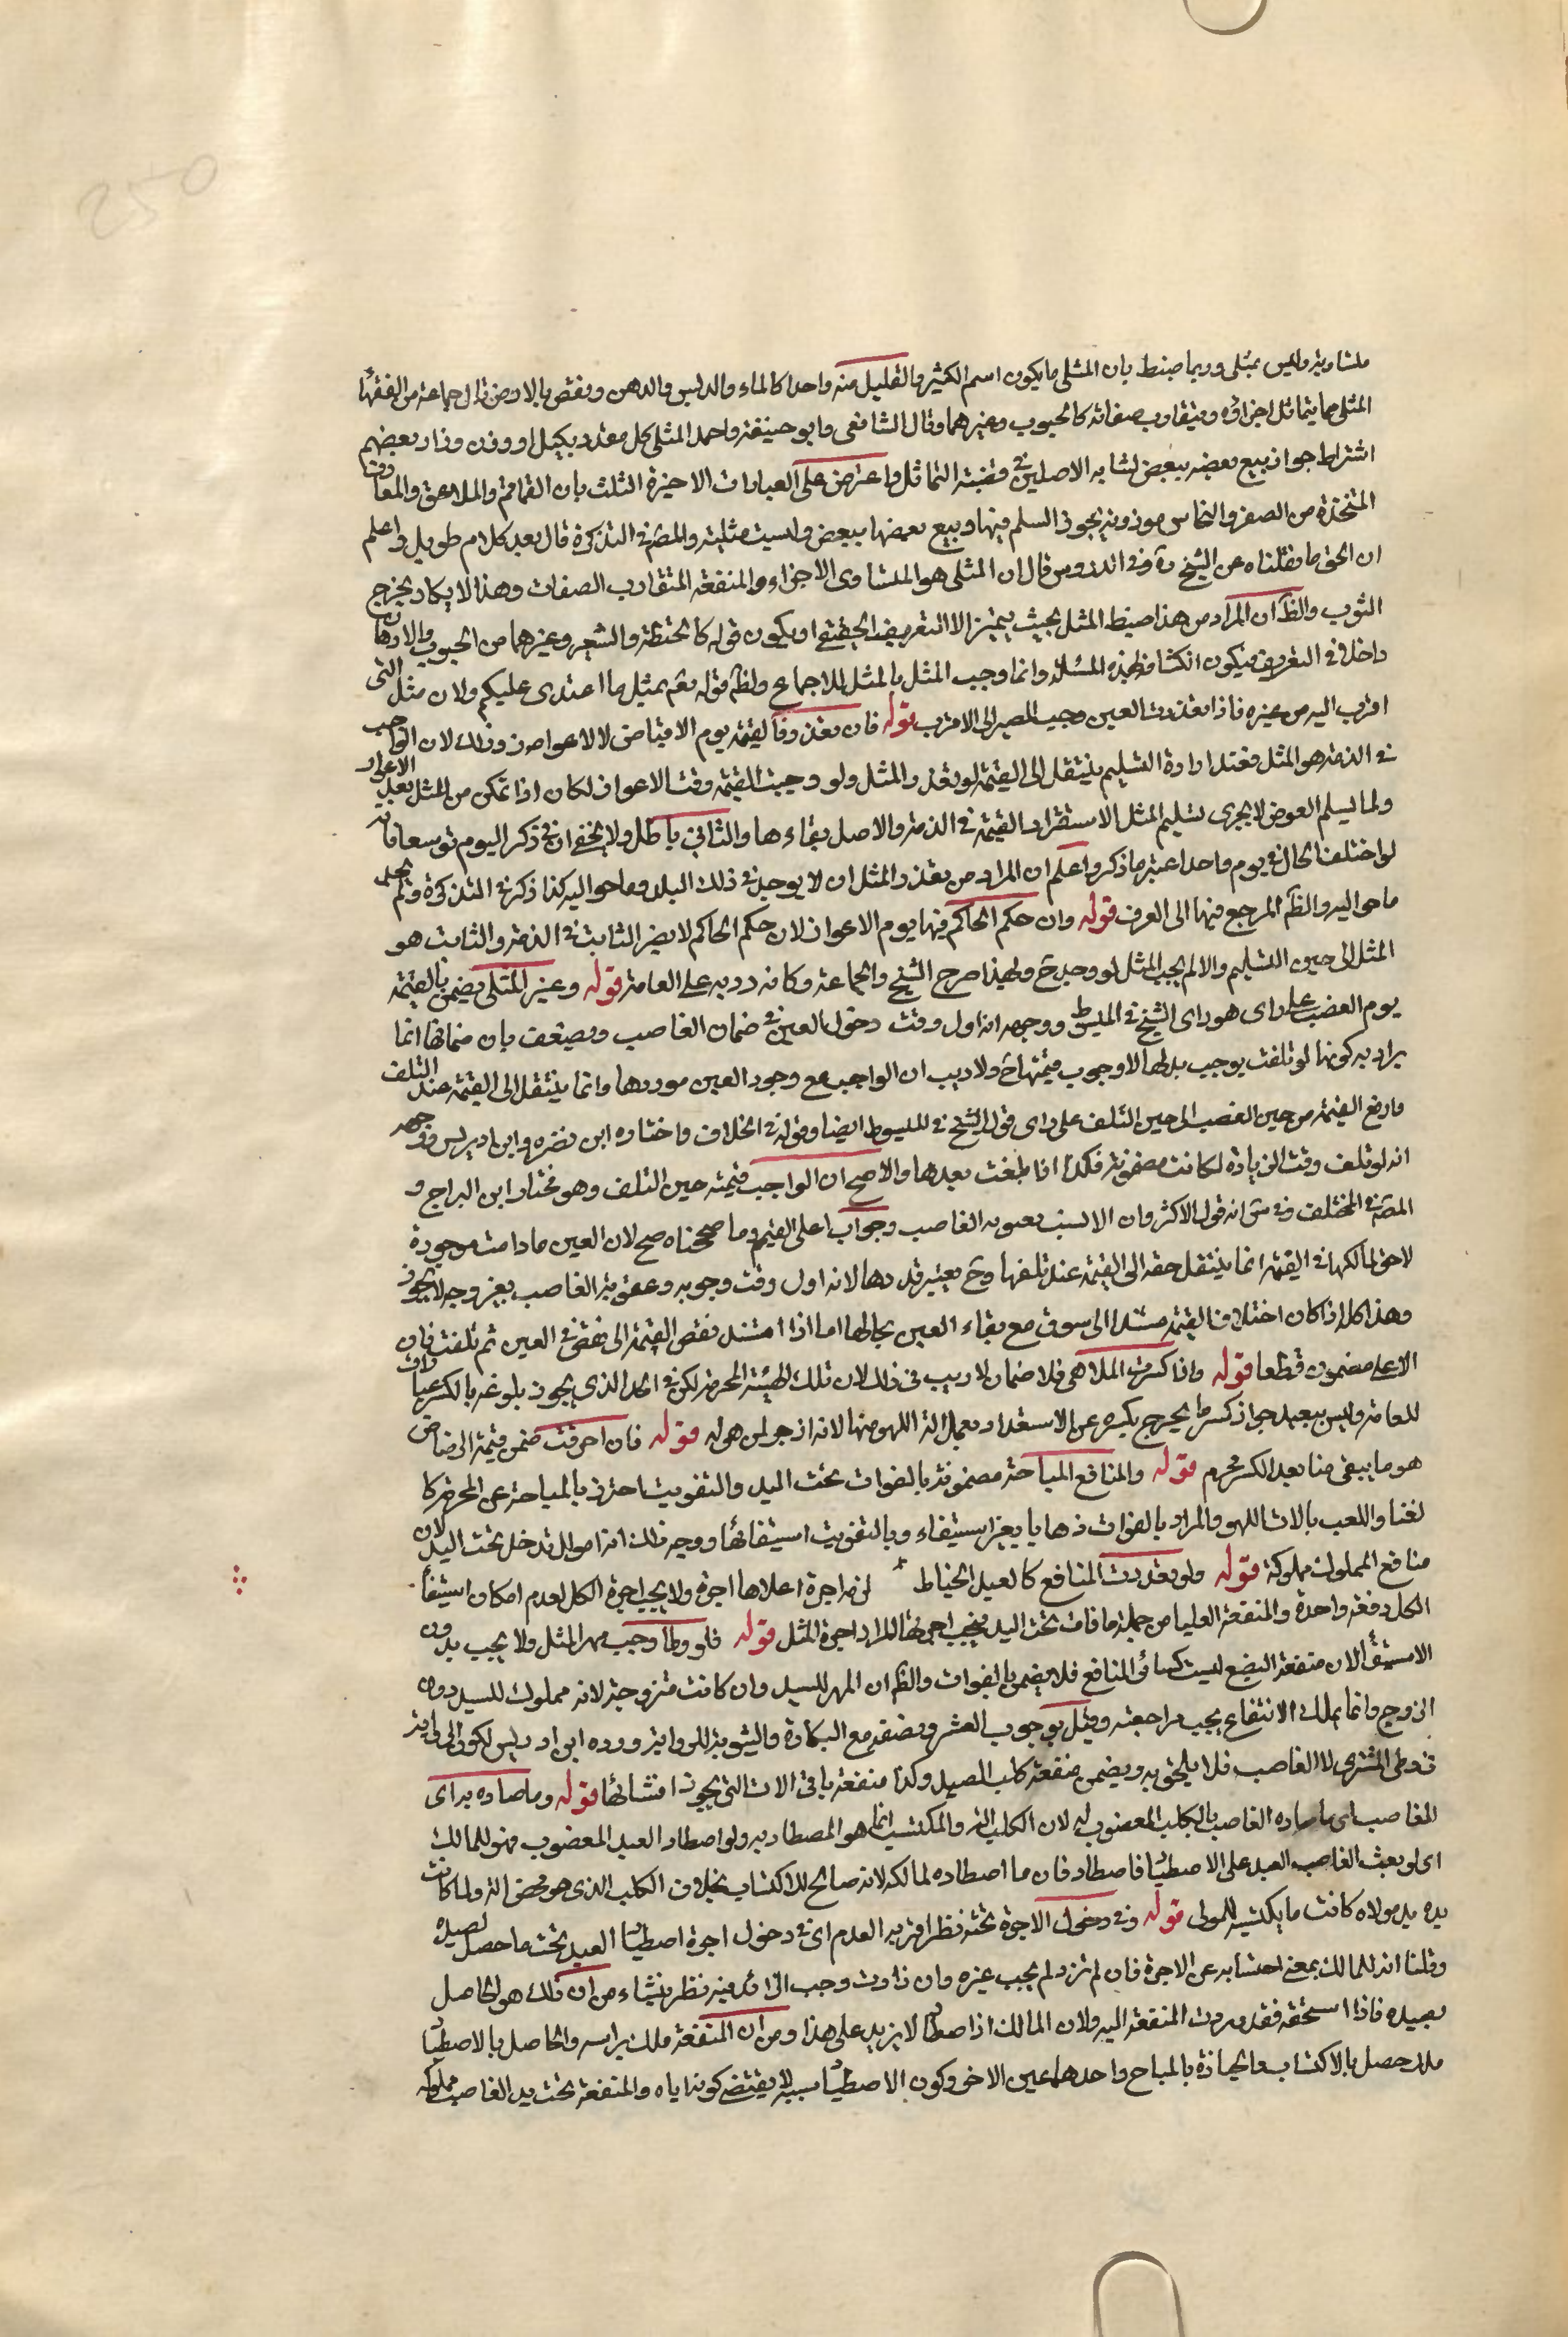 250
متساوية وليس بمثلى وربما ضبط بان المثلى ما يكون اسم الكثير والقليل منه واحدا كالماء والدبس والدهن ونقض بالارض قال جماعة من الفقهأ
المثلى مما يتماثل اجزاؤه ويتقارب صفاته كالحبوب وغيرهما وقال الشافعى وابو حنيفة واحمد المثلى كل مقدر بكيل او وزن وزاد بعضهم
اشتراط جواز بيع بعضه ببعض لتشابه الاصلين فى قضية التماثل واعترض على العبارات الاخيرة الثلث بان القماقمة والملاعق والمعارف
المتخذة من الصفر والنحاس موزونة يجوز السلم فيها وبيع بعضها ببعض وليست مثلية والمصَ فى التذكرة قال بعد كلام طويل واعلم
ان الحق ما نقلناه عن الشيخ رَة وفى الدروس قال ان المثلى هو المتساوى الاجزاء والمنفعة المتقارب الصفات وهذا لا يكاد يخرج
الثوب والظَ ان المراد من هذا ضبط المثل بحيث يتميز لا التعريف الحقيقى او يكون قوله كالحنطة والشعير وغيرهما من الحبوب والادهان
داخلا فى التعريف فيكون انكشافه بهذه المسئلة وانما وجب المثل بالمثل للاجماع ولظَ قوله تعَ بمثل ما اعتدى عليكم ولان مثل الشى
اقرب اليه من غيره فاذا تعذرت العين وجب المصير الى الاقرب قوله فان تعذر فالقيمة يوم الاقباض لا الاعواز وذلك لان الواجب
فى الذمة هو المثل فعند ارادة التسليم ينتقل الى القيمة لو تعذر المثل ولو وجبت القيمة وقت الاعواز لكان اذا تمكن من المثل بعد الاعواز
ولما يسلم العوض لا يجزى تسليم المثل لاستقرار القيمة فى الذمة والاصل بقاءها والثانى باطل ولا يخفى ان فى ذكر اليوم توسعا فانه
لو اختلف الحال فى يوم واحد اعتبر ما ذكر واعلم ان المراد من تعذر المثل ان لا يوجد فى ذلك البلد وما حواليه كذا ذكر فى التذكرة ولم يحد
ما حواليه والظَ المرجع فيها الى العرف قوله وان حكم الحاكم فيها يوم الاعواز لان حكم الحاكم لا يضر الثابت فى الذمة والثابت هو
المثل الى حين التسليم والا لم يجب المثل لو وجد حَ ولهذا صرح الشيخ والجماعة وكانه رد به على العامة قوله وغير المثلى يضمن بالقيمة
يوم الغصب على راى هو راى الشيخ فى المبسوط ووجهه انه اول وقت دخول العين فى ضمان الغاصب ويضعف بان ضمانها انما
يراد به كونها لو تلفت يوجب بدلها لا وجوب قيمتها حَ ولا ريب ان الواجب مع وجود العين هو ردها وانما ينتقل الى القيمة عند التلف
وارفع القيمة من حين الغصب الى حين التلف على راى قول الشيخ فى المبسوط ايضا وقوله فى الخلاف واختاره ابن حمزه وابن ادريس ووجهه
انه لو تلف وقت الزيادة لكانت مضمونة فكذا اذا تلفت بعدها والاصح ان الواجب قيمته حين التلف وهو مختار ابن البراج و
المصَ فى المختلف وفى سَ انه قول الاكثر وان الانسب بعقوبة الغاصب وجواب اعلى القيم وما صححناه صح لان العين ما دامت موجودة
لا حق لمالكها فى القيمة انما ينتقل حقه الى القيمة عند تلفها وحَ يعتبر قدرها لانه اول وقت وجوبه وعقوبة الغاصب بغير وجه لا يجوز
وهذا كله اذا كان اختلاف القيمة مستندا الى سوق مع بقاء العين بحالها اما اذا استند نقص القيمة الى نقص فى العين ثم تلفت فان
الاعلى مضمون قطعا قوله واذا كسرت الملاهى فلا ضمان لا ريب فى ذلك لان تلك الهيئة المحرمة لكن فى الحد الذى يجوز بلوغه بالكسر
للعامة وليس ببعيد جواز كسر ما يخرج بكسره عن الاستعداد بعمل الة اللهو منها لانه ازجر لمن هو له قوله فان احرقت ضمن قيمة الرضاض
هو ما يبقى منها بعد الكسر محرم قوله والمنافع المباحة مضمونة بالفوات تحت اليد والتفويت احترز بالمباحة عن المحرمة كا
لغنا واللعب بالات اللهو والمراد بالفوات ذهابها بغير استيفاء وبالتفويت استيفائها ووجه ذلك انها اموال تدخل تحت اليد لان
منافع المملوك مملوكة قوله ولو تعددت المنافع كالعبد الخياط لزمه اجرة اعلاها اجرة ولا يجب اجرة الكل لعدم امكان استيفأ
الكل دفعة واحدة والمنفعة العليا من جملة ما فات تحت اليد فيجب اجرتها للمراد اجرة المثل قوله فلو وطأ وجب مهر المثل ولا يجب بدون
الاستيفأ لان منفعة البضع ليست كسائر المنافع فلا يضمن بالفوات والظَ ان المهر للسيد وان كانت متزوجة لانه مملوك للسيد دون
الزوج وانما يملك الانتفاع يجب مراجعته وقيل بوجوب العشر ونصفه مع البكارة والثيوبة للرواية ورده ابن ادريس لكون الرواية
فى وطى المشترى لا الغاصب فلا يلحق به ويضمن منفعة كلب الصيد وكذا منفعة باقى الات التى يجوز اقتنائها قوله وما صاده به اى
الغاصب اى ما صاده الغاصب بالكلب المغصوب له لان الكلب الة والمكتسب انما هو المصطاد به ولو اصطاد العبد المغصوب فهو للمالك
اى لو بعث الغاصب العبد على الاصطياد فاصطاد فان ما اصطاده لمالكه لانه صالح للاكتساب بخلاف الكلب الذى هو محض الة ولما كانت
يده يد مولاه كانت ما يكتسبه للمولى قوله وفى دخول الاجرة تحته نظر اقربه العدم اى فى دخول اجرة اصطياد العبد تحت ما حصل لصيده
وقلنا انه للمالك بمعنى احتسابه عن الاجرة فان لم تزد لم يجب غيره وان زادت وجب الزائد فيه نظر ينشاء من ان ذلك هو الحاصل
بصيده فاذا استحقه فقد وردت المنفعة اليه ولان المالك اذا صطاد لا يزيد على هذا ومن ان المنفعة ملك براسه والحاصل بالاصطياد
ملك حصل بالاكتساب والحيازة بالمباح واحدهما غير الاخر وكون الاصطياد سببه لا يقتضى كونه اياه والمنفعة تحت يد الغاصب مملوكه